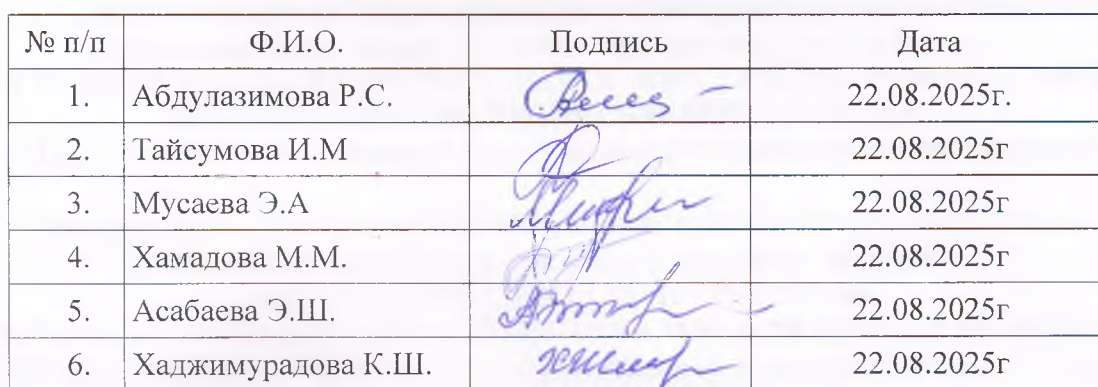 № п/п Ф.И.О. Подпись Дата
1. Абдулазимова Р.С. 22.08.2025г.
2. Тайсумова И.М 22.08.2025г
3. Мусаева Э.А 22.08.2025г
4. Хамадова М.М. 22.08.2025г
5. Асабаева Э.Ш. 22.08.2025г
6. Хаджимурадова К.Ш. 22.08.2025г